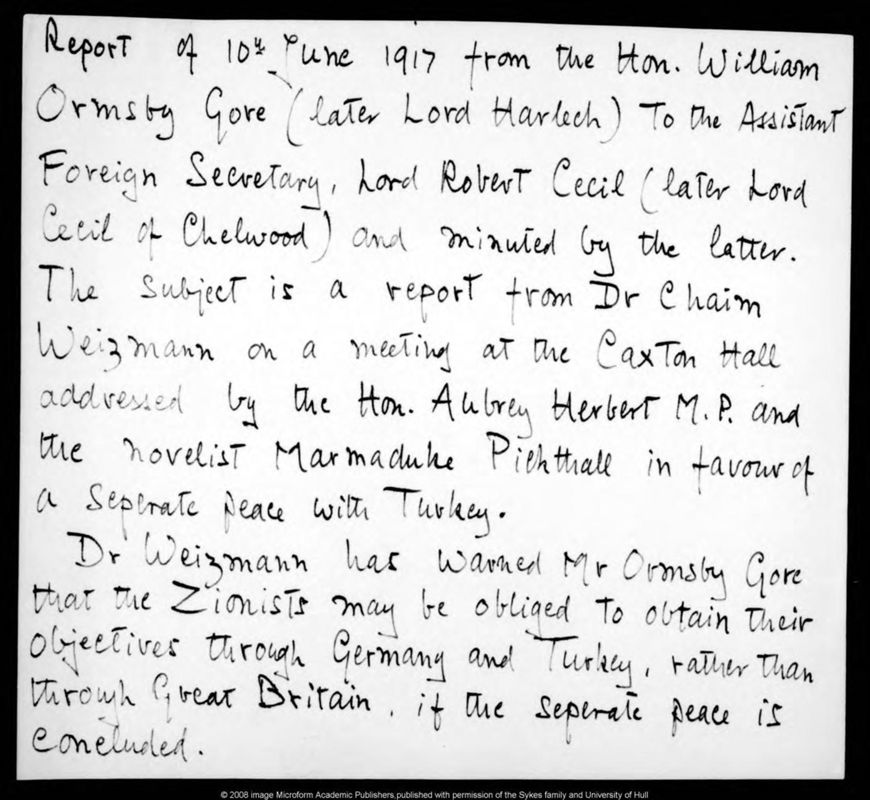 Report of 10th June 1917 from the Hon. William
Ormsby Gore (later Lord Harlech) To the Assistant
Foreign Secretary, Lord Robert Cecil (later Lord
Cecil of Chelwood) and minuted by the latter.
The subject is a report from Dr Chaim
Weizmann on a meeting at the Caxton Hall
addressed by the Hon. Aubrey Herbert M.P. and
the novelist Marmaduke Pickthall in favour of
a seperate peace with Turkey.
Dr Weizmann has warned Mr Ormsby Gore
that the Zionists may be obliged to obtain their
objectives through Germany and Turkey, rather than
through Great Britain, if the seperate peace is
concluded.
© 2008 image Microform Academic Publishers,published with permission of the Sykes family and University of Hull